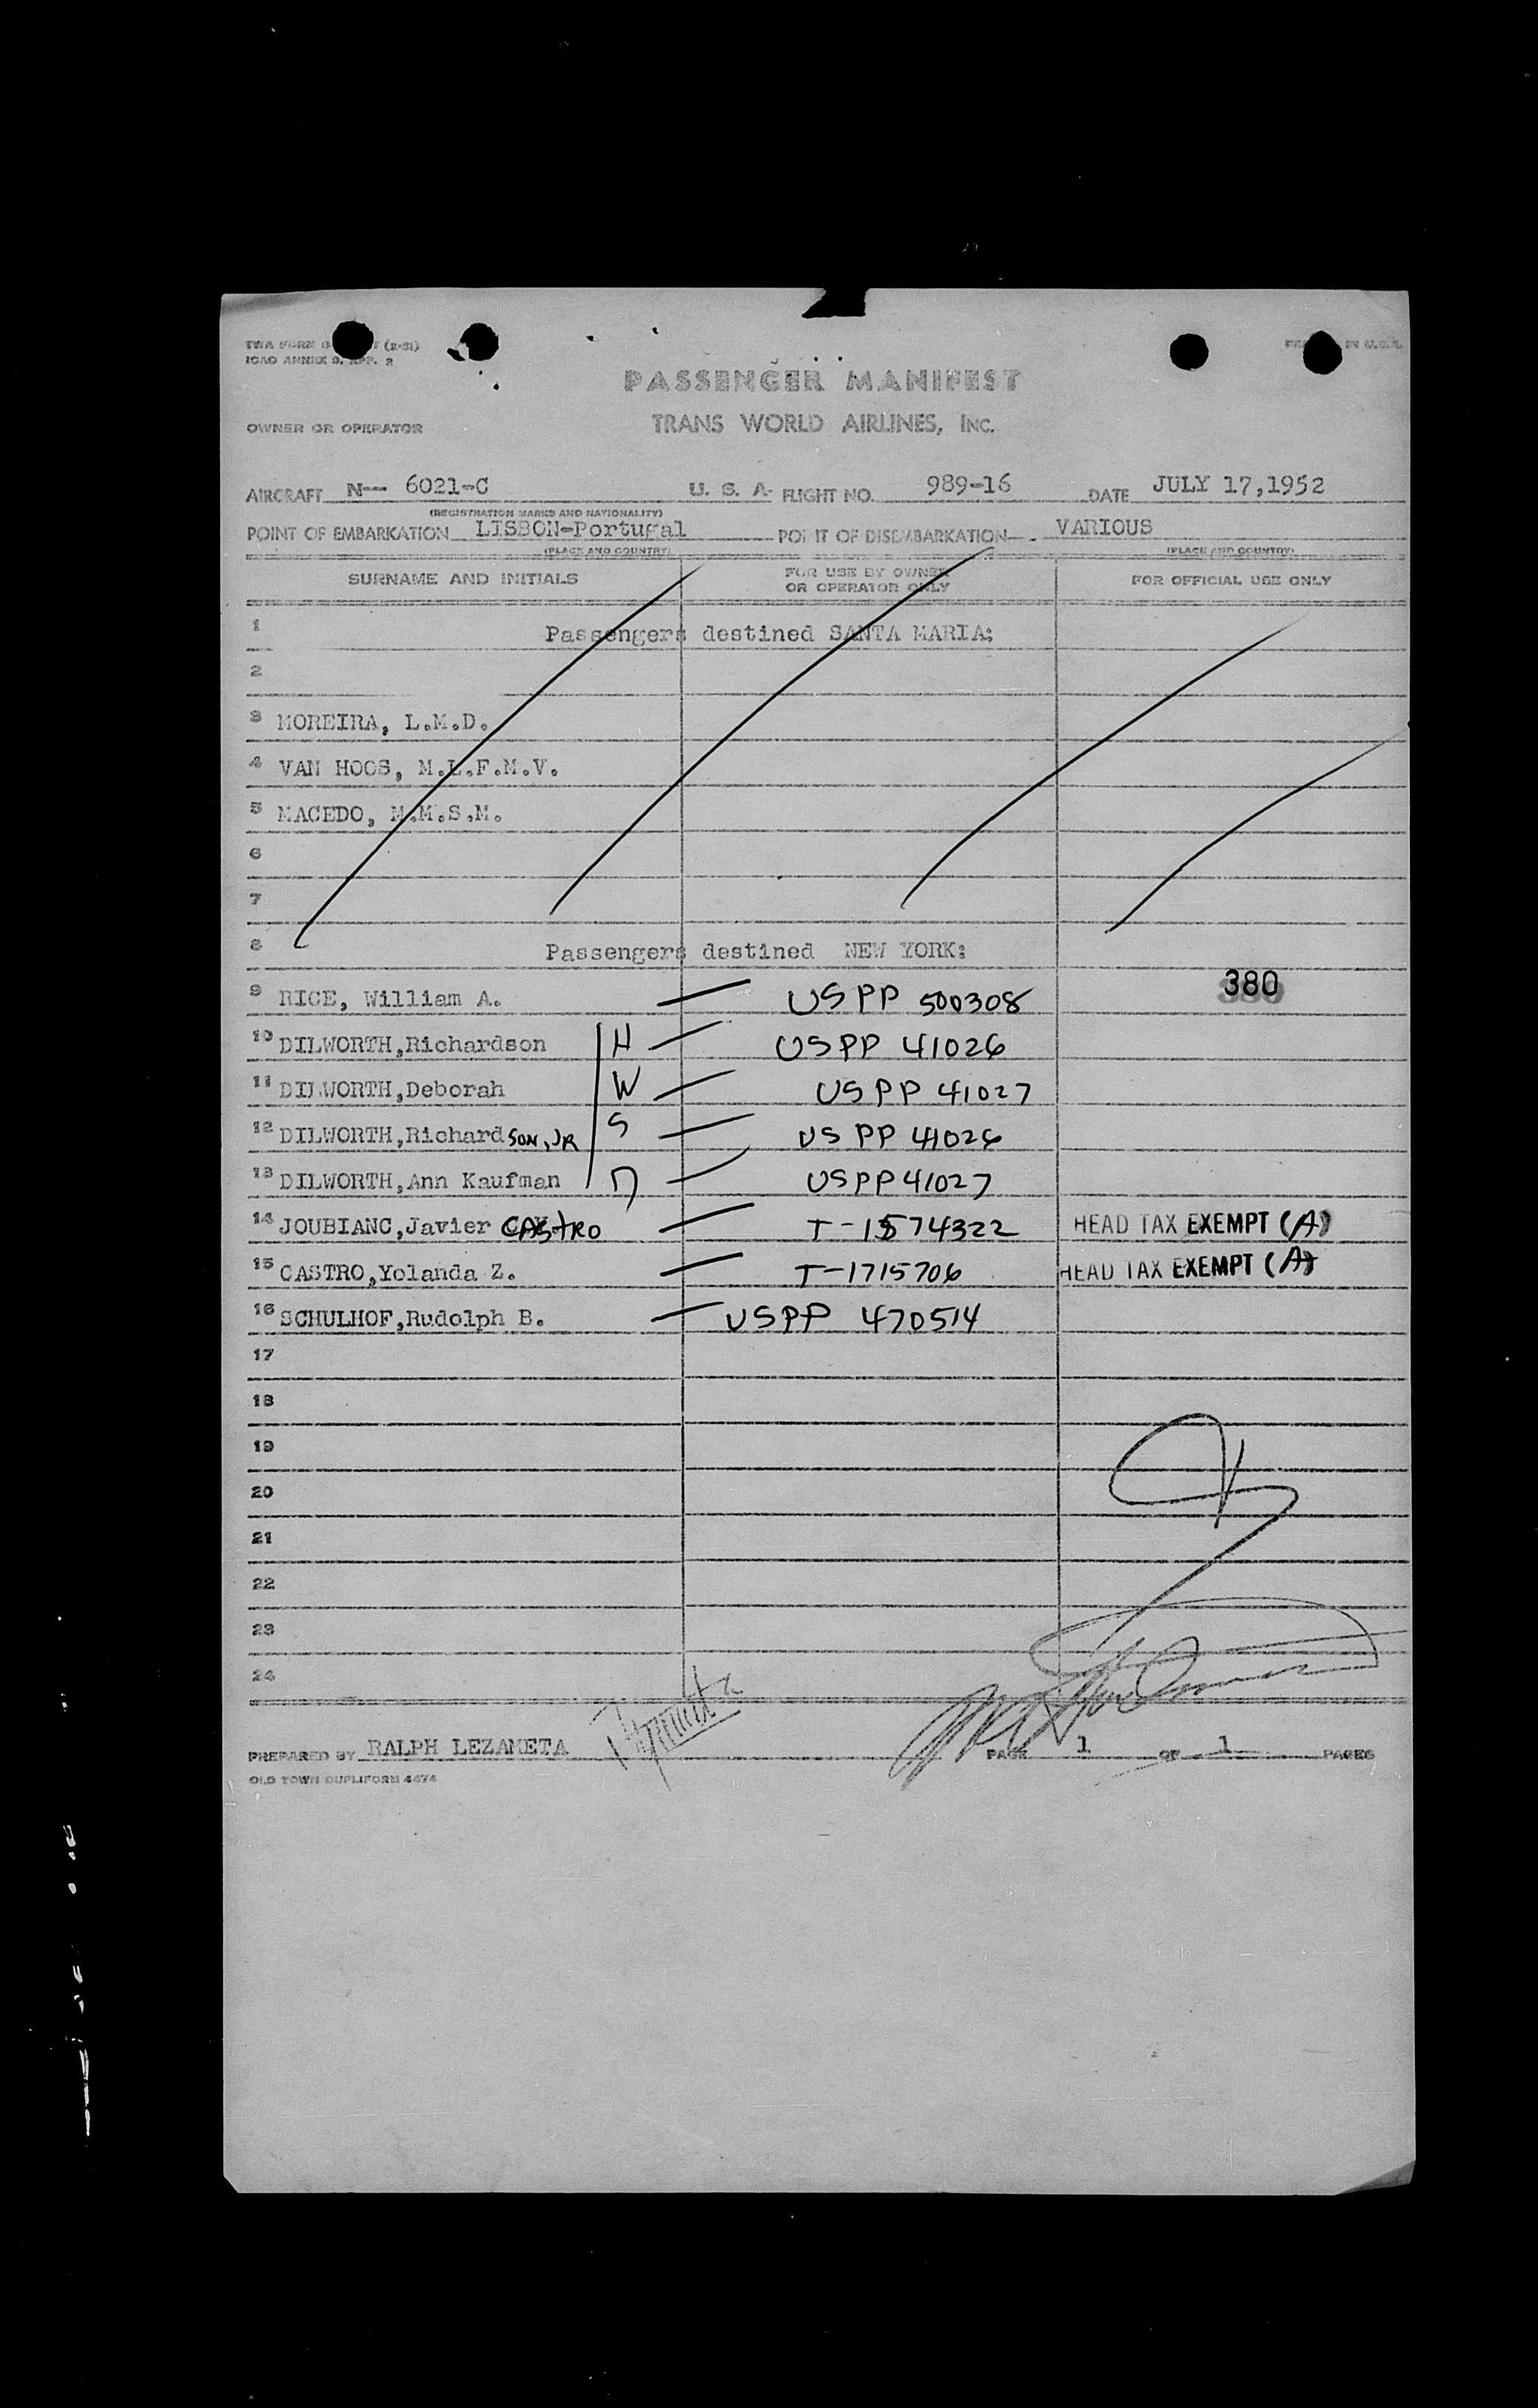 TWA FORM (2-51)
ICAO ANNEX 9, APP. 2
IN U.S.A.
PASSENGER MANIFEST
OWNER OR OPERATOR
TRANS WORLD AIRLINES, INC.
AIRCRAFT N-- 6021-C U. S. A. FLIGHT NO. 989-16 DATE JULY 17,1952
(REGISTRATION MARKS AND NATIONALITY)
POINT OF EMBARKATION LISBON-Portugal POINT OF DISEMBARKATION VARIOUS
(PLACE AND COUNTRY) (PLACE AND COUNTRY)
SURNAME AND INITIALS FOR USE BY OWNER OR OPERATOR ONLY FOR OFFICIAL USE ONLY
1 Passengers destined SANTA MARIA:
2
3 MOREIRA, L.M.D.
4 VAN HOOS, M.L.F.M.V.
5 MACEDO, M.M.S.M.
6
7
8 Passengers destined NEW YORK:
9 RICE, William A. — USPP 500308 380
10 DILWORTH,Richardson H — USPP 41026
11 DILWORTH,Deborah W — USPP 41027
12 DILWORTH,Richardson, JR S — USPP 41026
13 DILWORTH,Ann Kaufman D — USPP 41027
14 JOUBIANC,Javier CASTRO — T-1574322 HEAD TAX EXEMPT (A)
15 CASTRO,Yolanda Z. — T-1715706 HEAD TAX EXEMPT (A)
16 SCHULHOF,Rudolph B. — USPP 470514
17
18
19
20
21
22
23
24
PREPARED BY RALPH LEZAMETA PAGE 1 OF 1 PAGES
OLD TOWN DUPLIFORM 4474